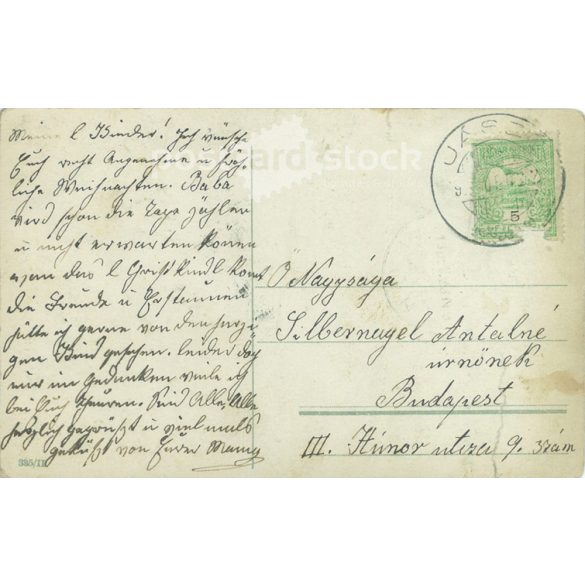 Meine l Kinder! Ich wünsche
Euch recht Angenehme u fröh-
liche Weihnachten. Baba
wird schon die Tage zählen
u nicht erwarten können
wan das l Christkindl komt
die Freude u Erstaunen
hätte ich gerne von den herzi-
gen Kind gesehen. leider
nur im Gedanken weile ich
bei Euch theuren. Seid Alle, Alle
herzlich gegrüßt u vielmals
geküßt von Eurer Mamy
335/II
UJAS
5
Ő Nagysága
Silbernagel Antalné
úrnőnek
Budapest
III. Hunor utcza 9. szám
card stock